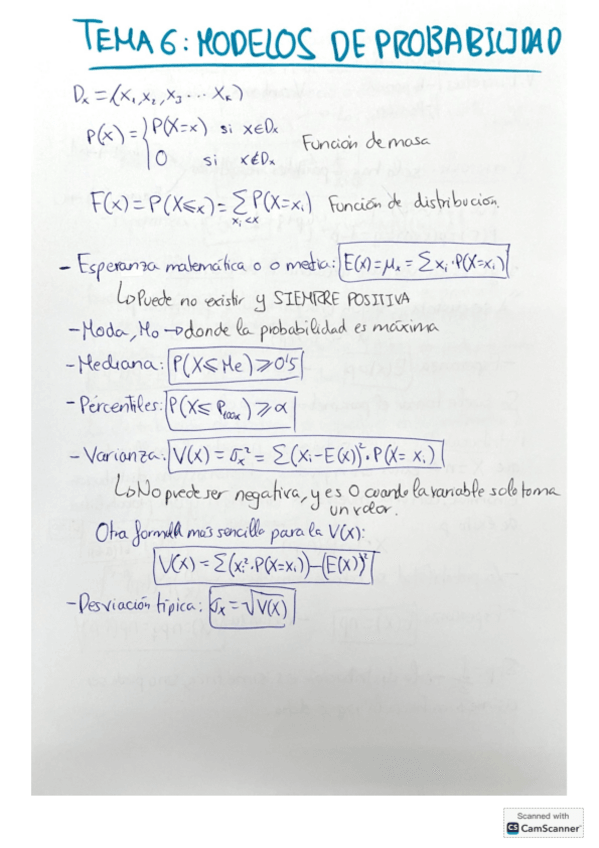 TEMA 6: MODELOS DE PROBABILIDAD
Dx = (x₁, x₂, x₃ ... xₖ)
P(x) = { P(X=x) si x∈Dx
0 si x∉Dx Función de masa
F(x) = P(X⩽x) = Σ P(X=xᵢ) Función de distribución.
xᵢ<x
- Esperanza matemática o o media: E(x) = μₓ = Σxᵢ·P(X=xᵢ)
↳Puede no existir y SIEMPRE POSITIVA
- Moda, Mo → donde la probabilidad es máxima
- Mediana: P(X⩽Me)⩾0'5
- Percentiles: P(X⩽P₁₀₀α)⩾α
- Varianza: V(X) = σₓ² = Σ(xᵢ-E(x))²·P(X=xᵢ)
↳No puede ser negativa, y es 0 cuando la variable solo toma
un valor.
Otra formula más sencilla para la V(X):
V(X) = Σ(xᵢ²·P(X=xᵢ))-(E(X))²
- Desviación típica: σₓ = √V(X)
Scanned with
CS CamScanner